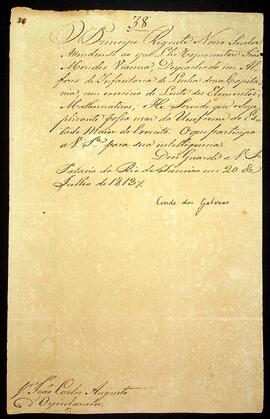 38
O Principe Regente Nosso Senhor
Attendendo ao que lhe Expoz João
Mendes Vianna, Despachado em Al-
feres de Infantaria de Linha dessa Capita-
nia, em exercicio de Lente dos Elementos
Mathematicos, He Servido que o Sup-
plicante possa usar do Uniforme do Es-
tado Maior do Exercito. O que participo
a V. Sa. para sua intelligencia.
Deos Guarde a V. Sa.
Palacio do Rio de Janeiro em 20 de
Julho de 1813
Conde das Galveas
Sr. João Carlos Augusto
d'Oyenhausen